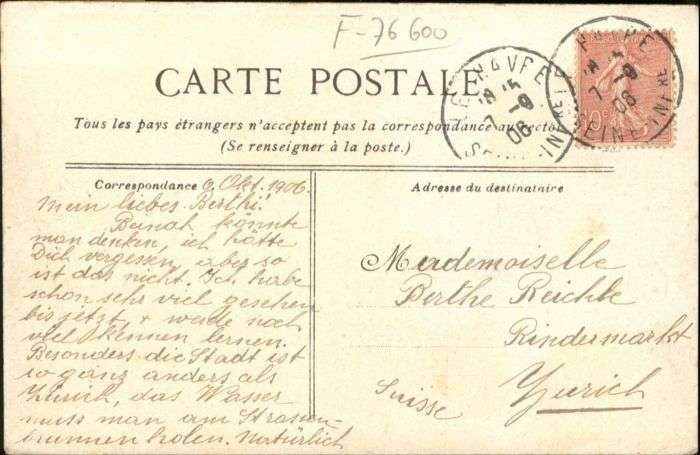 F-76600
CARTE POSTALE
Tous les pays étrangers n'acceptent pas la correspondance au recto
(Se renseigner à la poste.)
Correspondance 6. Okt. 1906.
Mein liebes Berthi!
Beinah könnte
man denken, ich hätte
Dich vergessen, aber so
ist das nicht. Ich habe
schon sehr viel gesehen
bis jetzt + werde noch
viel kennen lernen.
Besonders die Stadt ist
so ganz anders als
Zürich, das Wasser
muss man am Strassen-
brunnen holen. Natürlich
Adresse du destinataire
Mademoiselle
Berthe
Rindermarkt
Zuerich
Suisse
LE HAVRE
7 - 9
06
SEINE INFRE
HAVRE
7 - 9
06
SEINE INFRE
10c